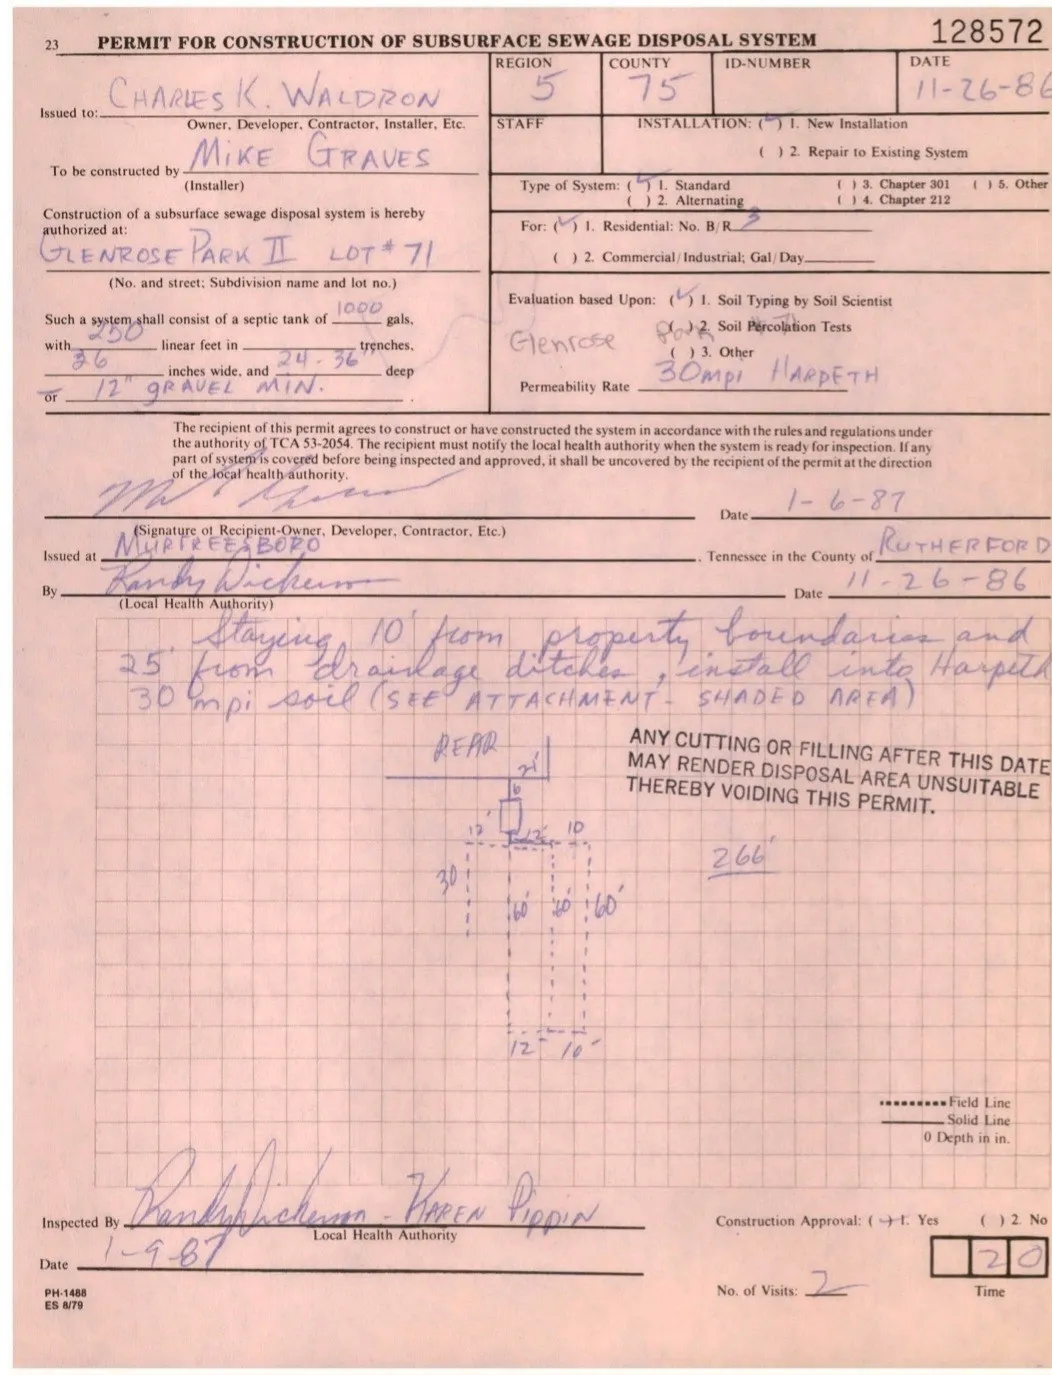 23 PERMIT FOR CONSTRUCTION OF SUBSURFACE SEWAGE DISPOSAL SYSTEM 128572
Issued to: CHARLES K. WALDRON
Owner, Developer, Contractor, Installer, Etc.
To be constructed by MIKE GRAVES
(Installer)
Construction of a subsurface sewage disposal system is hereby
authorized at:
GLENROSE PARK II LOT # 71
(No. and street; Subdivision name and lot no.)
Such a system shall consist of a septic tank of 1000 gals,
with 250 linear feet in trenches,
36 inches wide, and 24-36" deep
or 12" GRAVEL MIN.
REGION 5
COUNTY 75
ID-NUMBER
DATE 11-26-86
STAFF
INSTALLATION: (✓) 1. New Installation
( ) 2. Repair to Existing System
Type of System: (✓) 1. Standard ( ) 3. Chapter 301 ( ) 5. Other
( ) 2. Alternating ( ) 4. Chapter 212
For: (✓) 1. Residential: No. B/R 3
( ) 2. Commercial/Industrial; Gal/Day
Evaluation based Upon: (✓) 1. Soil Typing by Soil Scientist
( ) 2. Soil Percolation Tests
Glenrose Park # 71
( ) 3. Other
Permeability Rate 30mpi HARPETH
The recipient of this permit agrees to construct or have constructed the system in accordance with the rules and regulations under
the authority of TCA 53-2054. The recipient must notify the local health authority when the system is ready for inspection. If any
part of system is covered before being inspected and approved, it shall be uncovered by the recipient of the permit at the direction
of the local health authority.
Date 1-6-87
(Signature of Recipient-Owner, Developer, Contractor, Etc.)
Issued at MURFREESBORO , Tennessee in the County of RUTHERFORD
By Randy Dickerson Date 11-26-86
(Local Health Authority)
Staying 10' from property boundaries and
25' from drainage ditches, install into Harpeth
30 mpi soil (SEE ATTACHMENT - SHADED AREA)
REAR
ANY CUTTING OR FILLING AFTER THIS DATE
MAY RENDER DISPOSAL AREA UNSUITABLE
THEREBY VOIDING THIS PERMIT.
21'
6
12' 12' 10
266'
30
60' 60' 60'
12' 10'
Field Line
Solid Line
0 Depth in in.
Inspected By Randy Dickerson - KAREN PIPPIN
Local Health Authority
Construction Approval: (✓) 1. Yes ( ) 2. No
Date 1-9-87
No. of Visits: 2
20
Time
PH-1488
ES 8/79